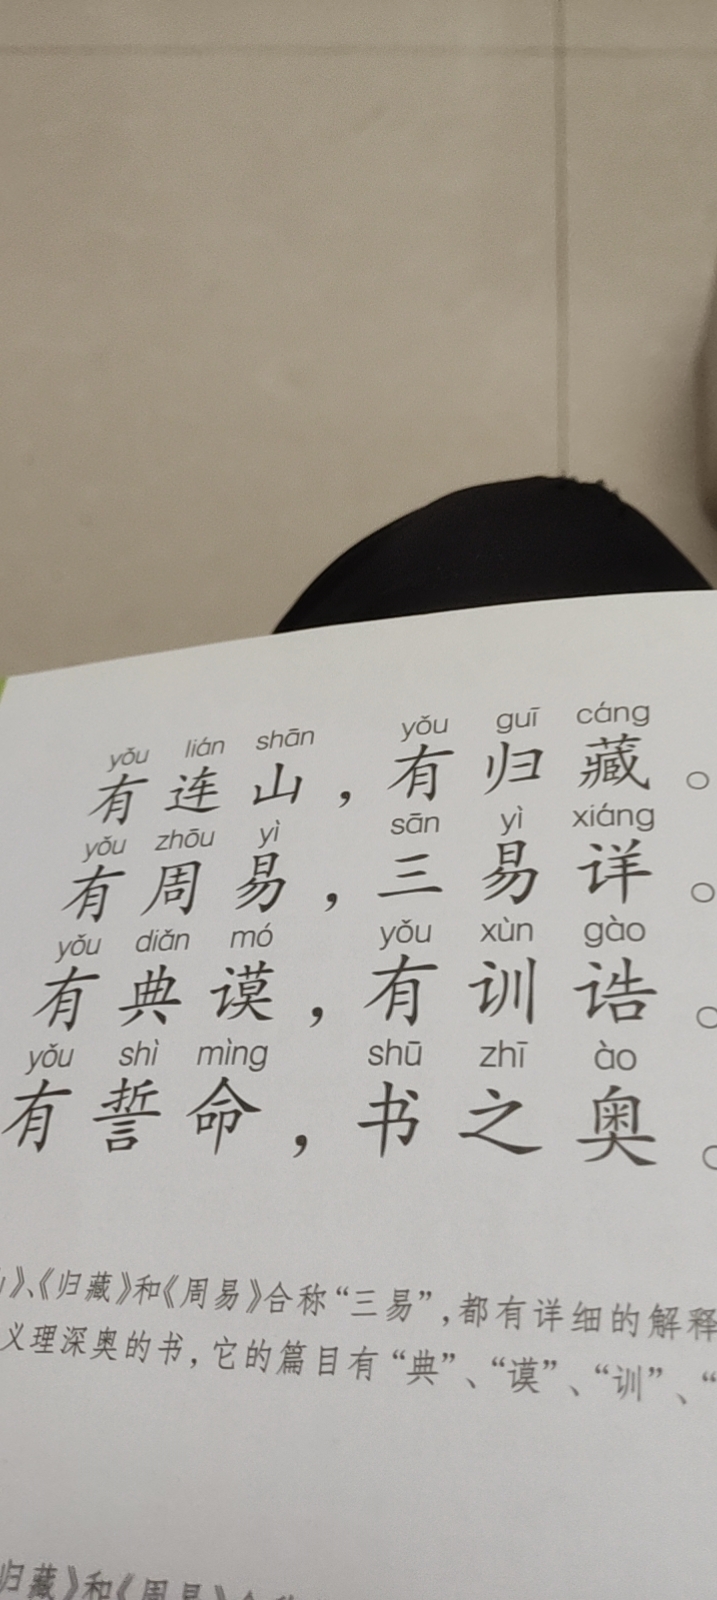 yǒu lián shān yǒu guī cáng
有连山，有归藏。
yǒu zhōu yì sān yì xiáng
有周易，三易详。
yǒu diǎn mó yǒu xùn gào
有典谟，有训诰。
yǒu shì mìng shū zhī ào
有誓命，书之奥。
》、《归藏》和《周易》合称“三易”，都有详细的解释
义理深奥的书，它的篇目有“典”、“谟”、“训”、“
归藏》和《周易》合称